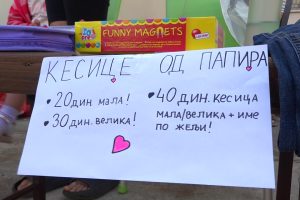 FUNNY MAGNETS
КЕСИЦЕ ОД ПАПИРА
• 20 дин. мала!
• 30 дин. велика!
• 40 дин. кесица
мала/велика + име
по жељи!